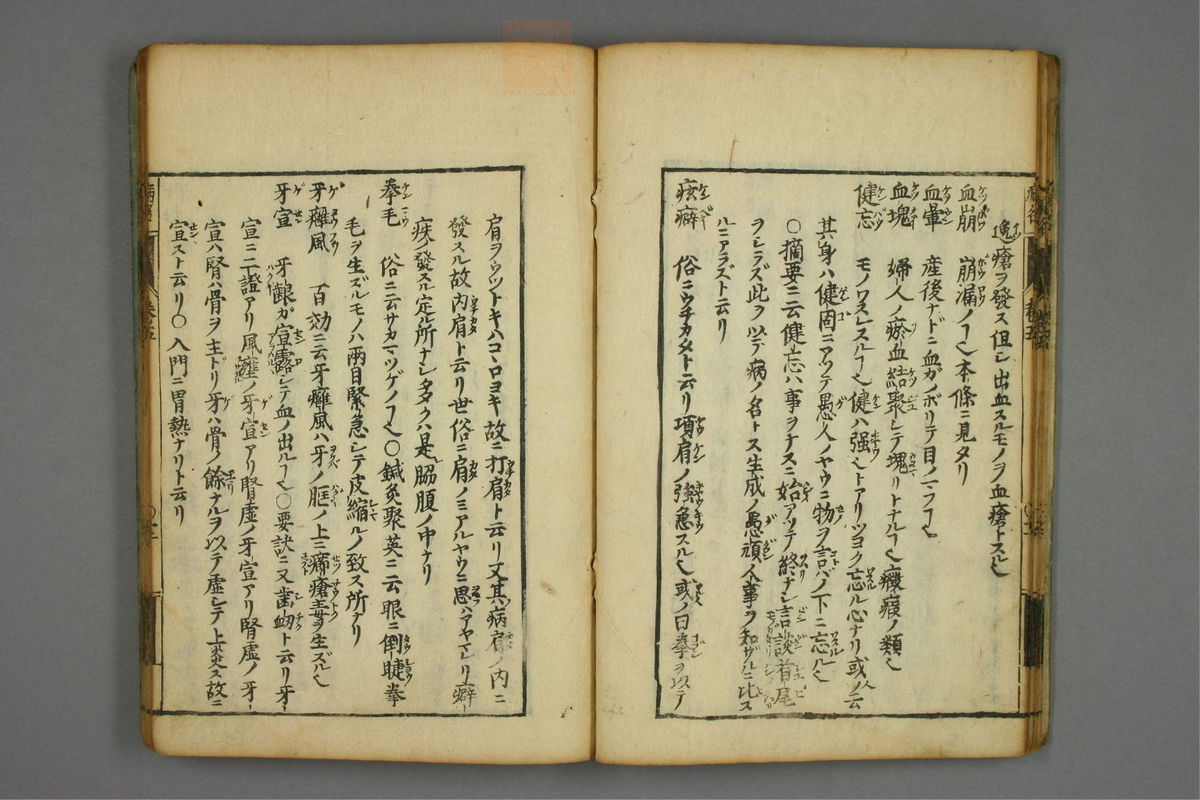 逸瘡ヲ發ス但シ出血スルモノヲ血瘡トスル𪜈
血崩 崩漏ノ𪜈本條ニ見タリ
血暈 産後ナドニ血ガノボリテ目ノマフ𪜈
血塊 婦人ノ瘀血結聚シテ塊リトナル𪜈癥瘕ノ類𪜈
健忘 モノワスレスル𪜈健ハ强𪜈トアリツヨク忘ル心ナリ或人ノ云
其身ハ健固ニアツテ愚人ノヤウニ物ヲ言バノ下ニ忘ル𪜈
○摘要ニ云健忘ハ事ヲナスニ始アツテ終ナシ言談首尾
ヲシラズ此ヲ以テ病ノ名トス生成ノ愚頑人事ヲ知ザルニ比ス
ルニアラズト云リ
痃癖 俗ニウチカタト云リ項肩ノ強急スル𪜈或ノ曰拳ヲ以テ
肩ヲウツトキハコヽロヨキ故ニ打肩ト云リ又其病肩ノ内ニ
發スル故内肩ト云リ世俗ニ肩ノミアルヤウニ思ハアヤマレリ癖
疾ノ發スル定ル所ナシ多クハ是脇腹ノ中ナリ
拳毛 俗ニ云サカマツゲノ𪜈○鍼灸聚英ニ云眼ニ倒睫拳
毛ヲ生ズルモノハ兩目緊急シテ皮縮ルノ致ス所ナリ
牙癰風 百効ニ云牙癰風ハ牙ノ腄ノ上ニ癤瘡毒ヲ生ズル𪜈
牙宣 牙齦ガ宣露シテ血ノ出ル𪜈○要訣ニ又歯衂ト云リ牙
宣ニ二證アリ風壅ノ牙宣アリ腎虚ノ牙宣アリ腎虚ノ牙
宣ハ腎ハ骨ヲ主ドリ牙ハ骨ノ餘ナルヲ以テ虚シテ上炎ス故ニ
宣スト云リ○入門ニ胃熱ナリト云リ